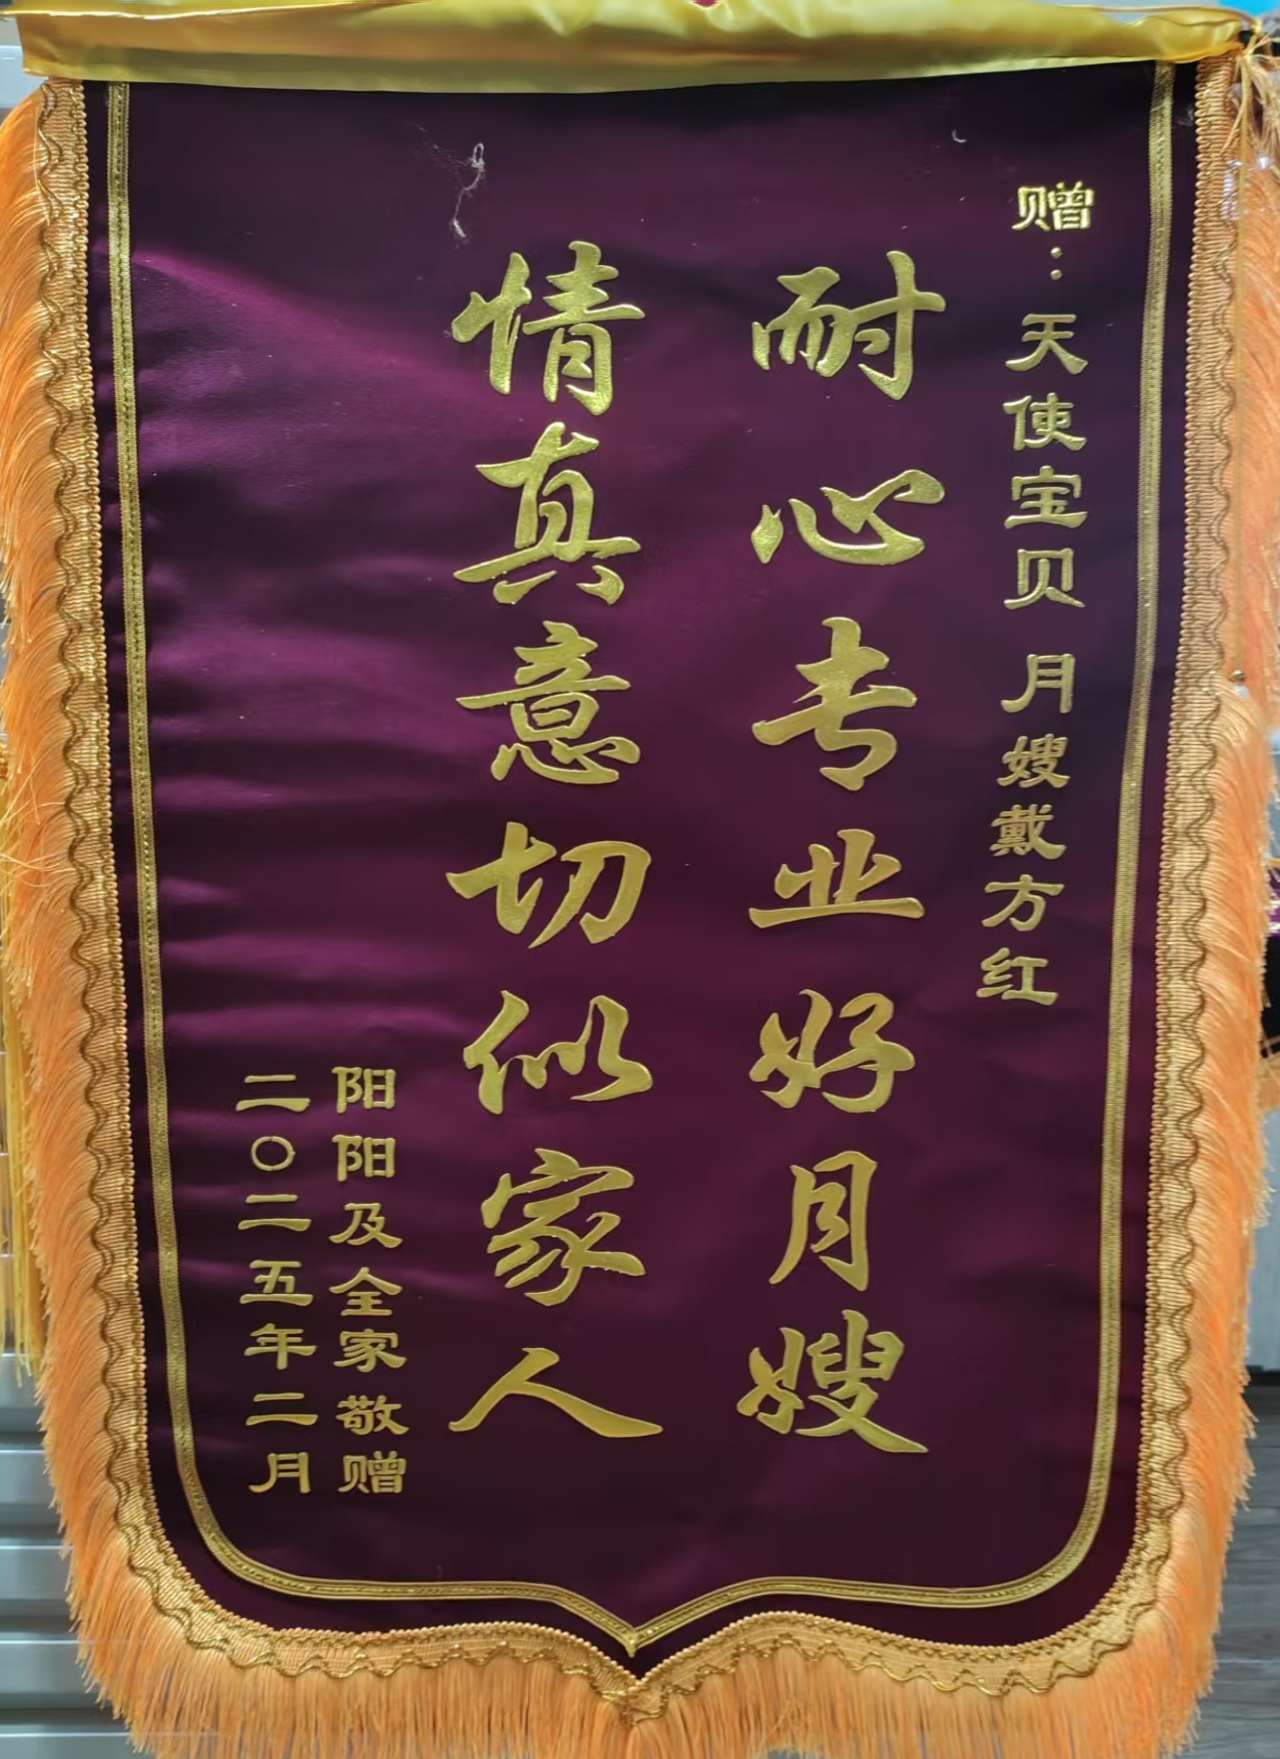 赠：天使宝贝 月嫂戴方红
耐心专业好月嫂
情真意切似家人
阳阳及全家敬赠
二〇二五年二月